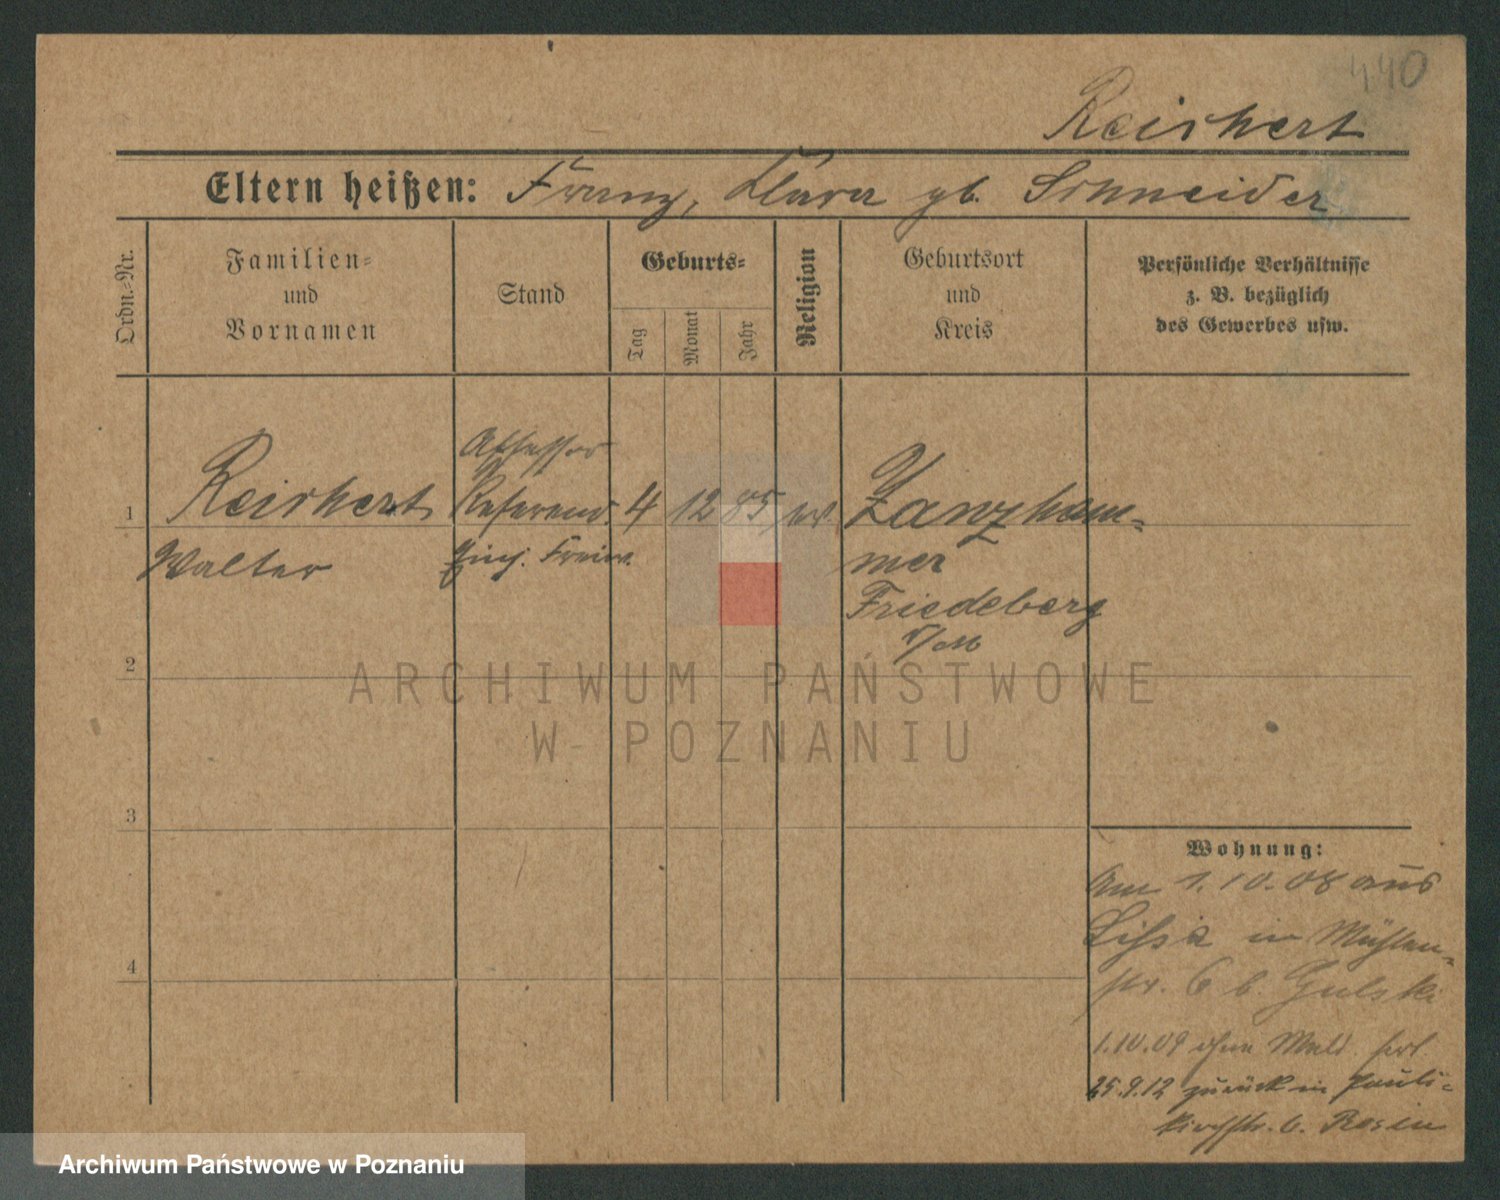 440
Reichert
Eltern heißen: Franz, Klara gb. Schneider
Ordn.-Nr.
Familien-
und
Vornamen
Stand
Geburts-
Tag
Monat
Jahr
Religion
Geburtsort
und
Kreis
Persönliche Verhältnisse
z. B. bezüglich
des Gewerbes usw.
Assessor
1 Reichert Referend. 4 12 85 ev Zanzham-
Walter Einj. Freiw. mer
Friedeberg
2
ARCHIWUM PAŃSTWOWE
W POZNANIU
3
Wohnung:
Am 1.10.08 aus
Lissa in Mühlen-
str. 6 b. Gulski
4
1.10.09 ohne Meld. fort
25.9.12 zurück in Pauli-
kirchstr. 6. Rosin
Archiwum Państwowe w Poznaniu